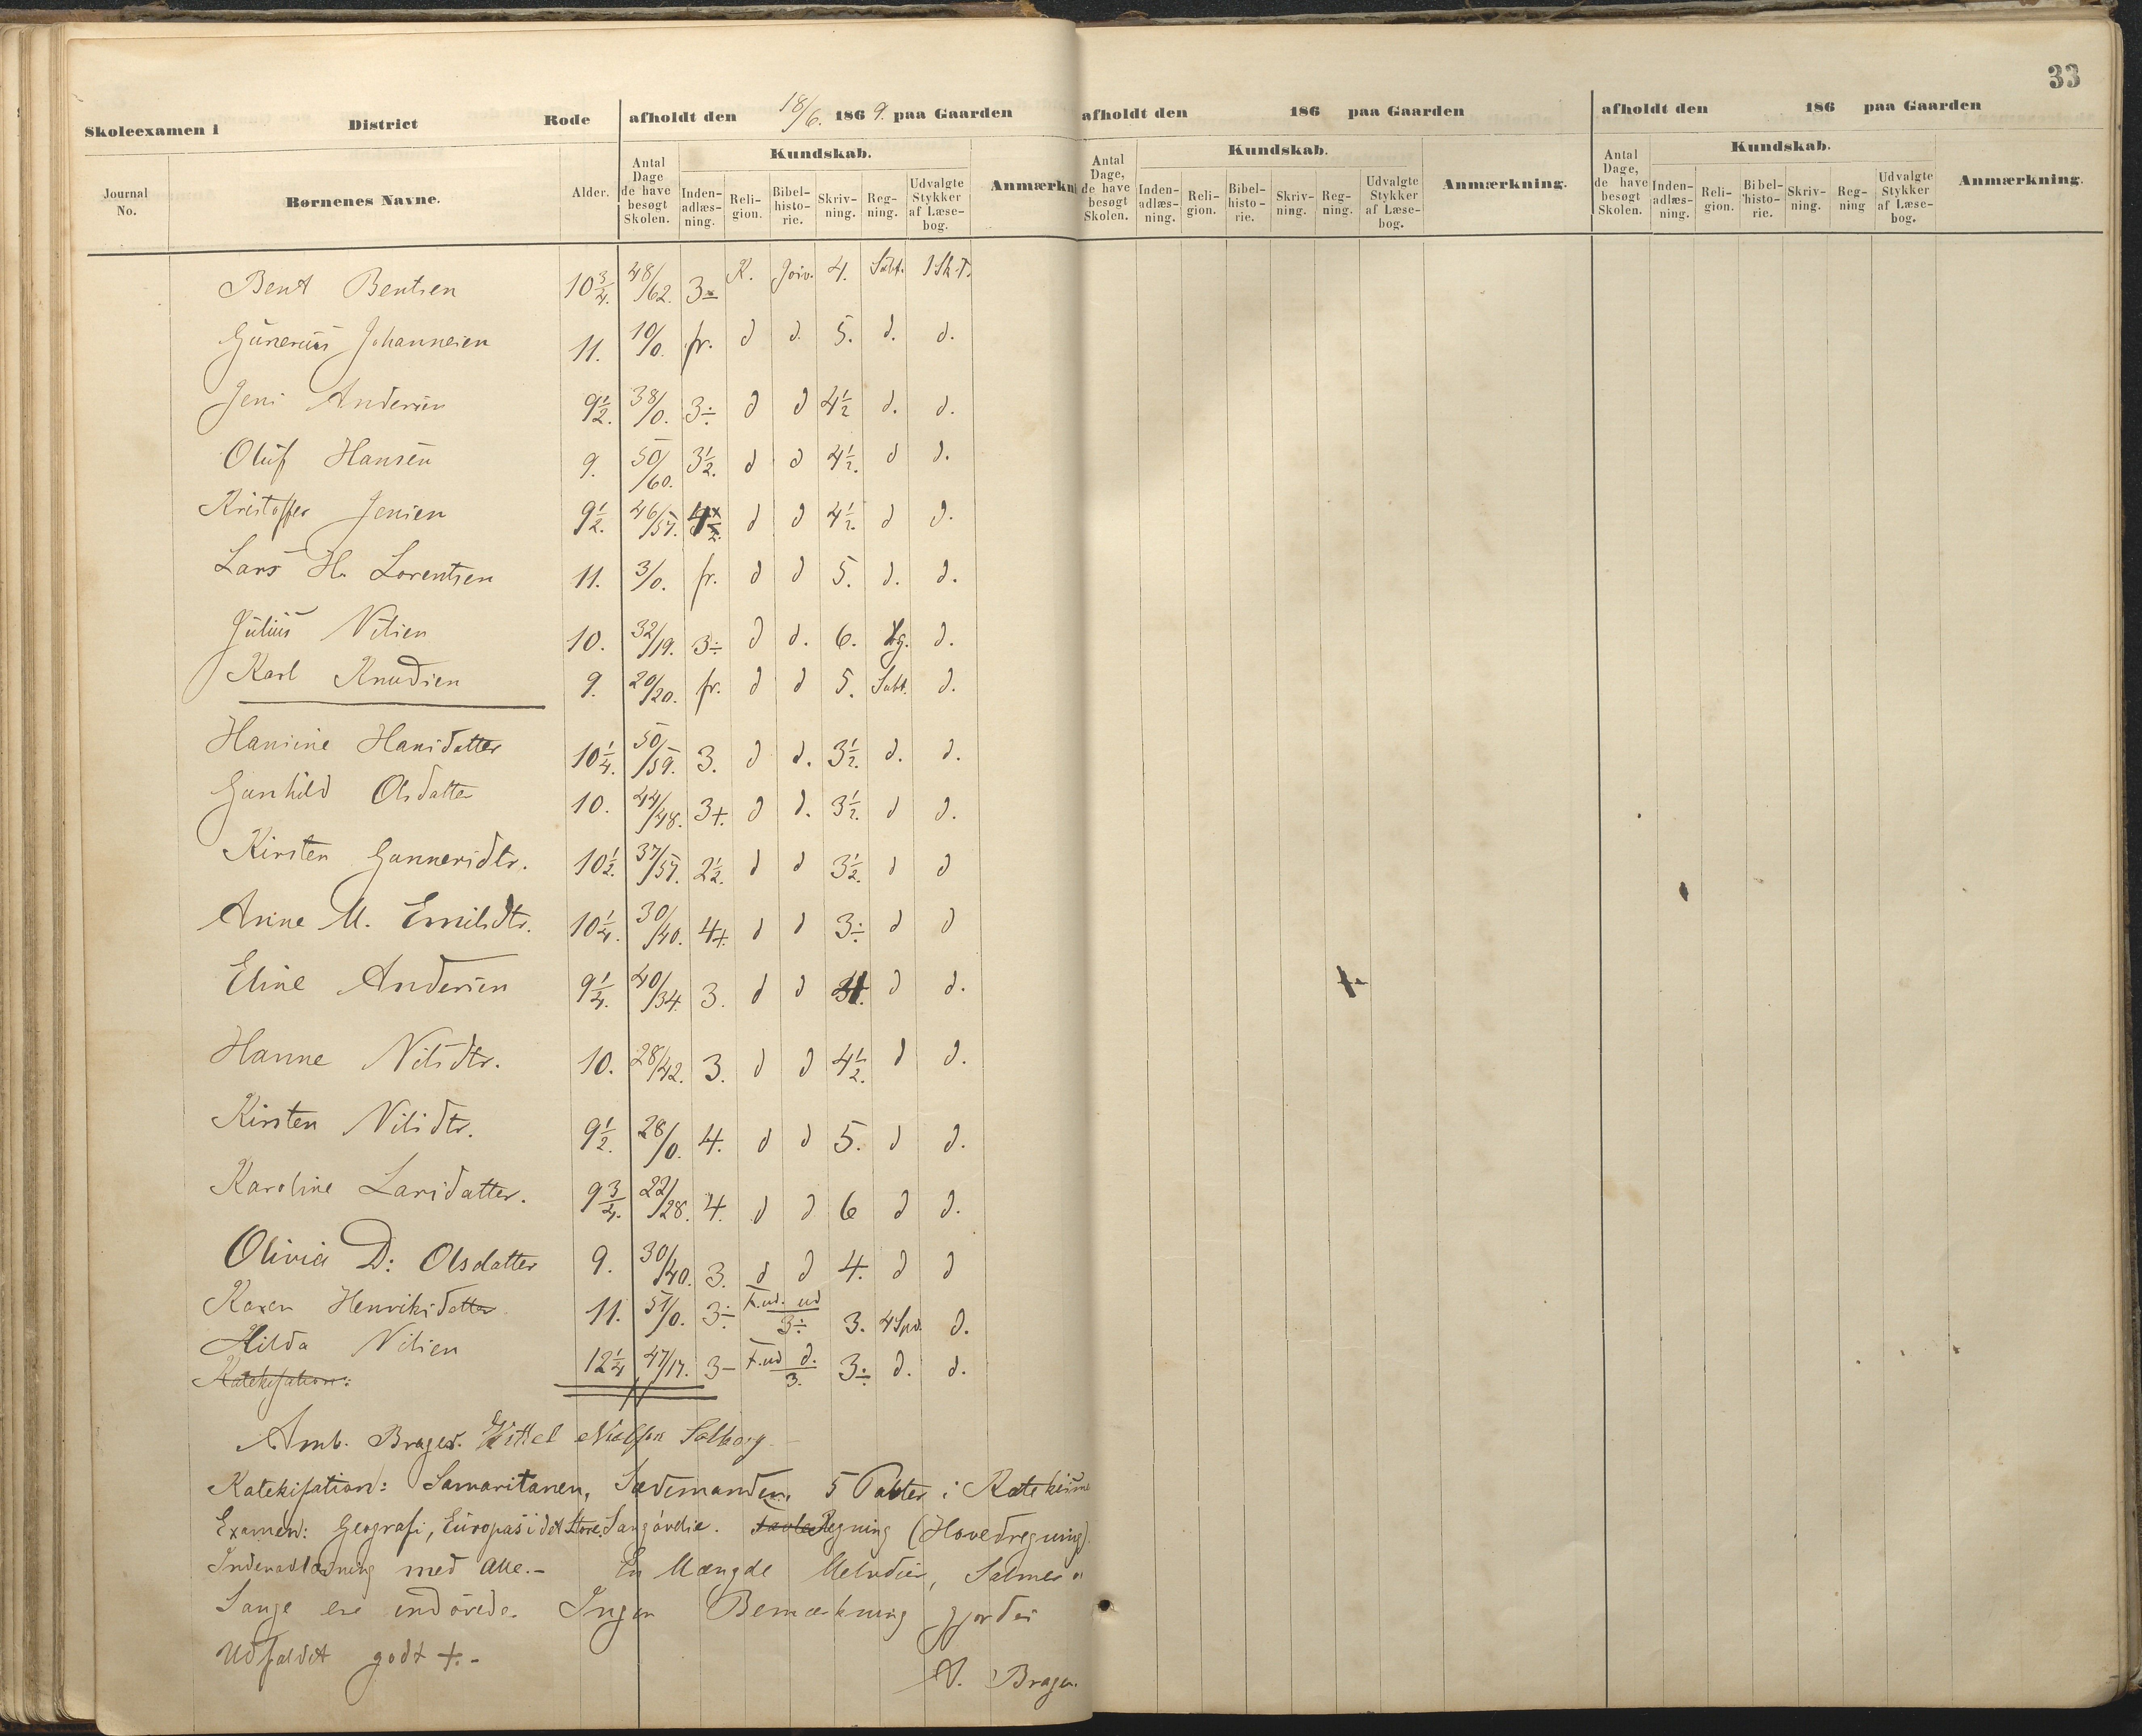 33
Skoleexamen i District Rode afholdt den 18/6. 1869. paa Gaarden
afholdt den 186 paa Gaarden
afholdt den 186 paa Gaarden
Journal No. Børnenes Navne. Alder. Antal Dage de have besøgt Skolen. Kundskab. Inden-adlæs-ning. Reli-gion. Bibel-histo-rie. Skriv-ning. Reg-ning. Udvalgte Stykker af Læse-bog. Anmærkn
Antal Dage, de have besøgt Skolen. Kundskab. Inden-adlæs-ning. Reli-gion. Bibel-histo-rie. Skriv-ning. Reg-ning. Udvalgte Stykker af Læse-bog. Anmærkning.
Antal Dage, de have besøgt Skolen. Kundskab. Inden-adlæs-ning. Reli-gion. Bibel-histo-rie. Skriv-ning. Reg-ning Udvalgte Stykker af Læse-bog. Anmærkning.
Bent Bentsen 10 3/4. 48/62. 3 K. 4. Subt.
Gunerius Johannesen 11. 10/0. fr. d d. 5. d. d.
Jens Andersen 9 1/2. 38/0. 3÷ d d 4 1/2 d. d.
Oluf Hansen 9. 50/60. 3 1/2. d d 4 1/2. d d.
Kristoffer Jensen 9 1/2. 46/57. d d 4 1/2. d d.
Lars H. Lorentsen 11. 3/0. fr. d d 5. d. d.
Julius Nilsen 10. 32/19. 3÷ d d. 6. d.
Karl Knudsen 9. 20/20. fr. d d 5. Subt. d.
Hansine Hansdatter 10 1/4. 50/59. 3. d d. 3 1/2. d. d.
Gunhild Olsdatter 10. 44/48. 3+. d d. 3 1/2. d d.
Kirsten Gunnersdtr. 10 1/2. 37/57. 2 1/2. d d 3 1/2. d d
Anne M. Emilsdtr. 10 1/4. 30/40. 4+. d d 3÷ d d
Eline Andersen 9 1/4. 40/34. 3. d d 4. d d.
Hanne Nilsdtr. 10. 28/42. 3. d d 4 1/2. d d.
Kirsten Nilsdtr. 9 1/2. 28/0. 4. d d 5. d d.
Karoline Larsdatter. 9 3/4. 22/28. 4. d d 6 d d.
Olivia D: Olsdatter 9. 30/40. 3. d d 4. d d
Karen Henriksdatter 11. 51/0. 3÷ F.ud. ud 3÷ 3. 4 Spd. d.
Hilda Nilsen 12 1/4 47/17. 3– F.ud d. 3. 3÷ d. d.
Katekisation:
Amb. Brager. Kittel Nielsen Solborg
Katekisation: Samaritanen, Sædemanden. 5 Parter i Katekism
Examen: Geografi, Europas i det Store. Sangøvelse. Tavle Regning (Hovedregning)
Indenadlæsning med Alle.– En Mængde Melodier, Salmer o
Sange ere indøvede. Ingen Bemærkning gjordes
Udfaldet godt +.–
A. Brager.